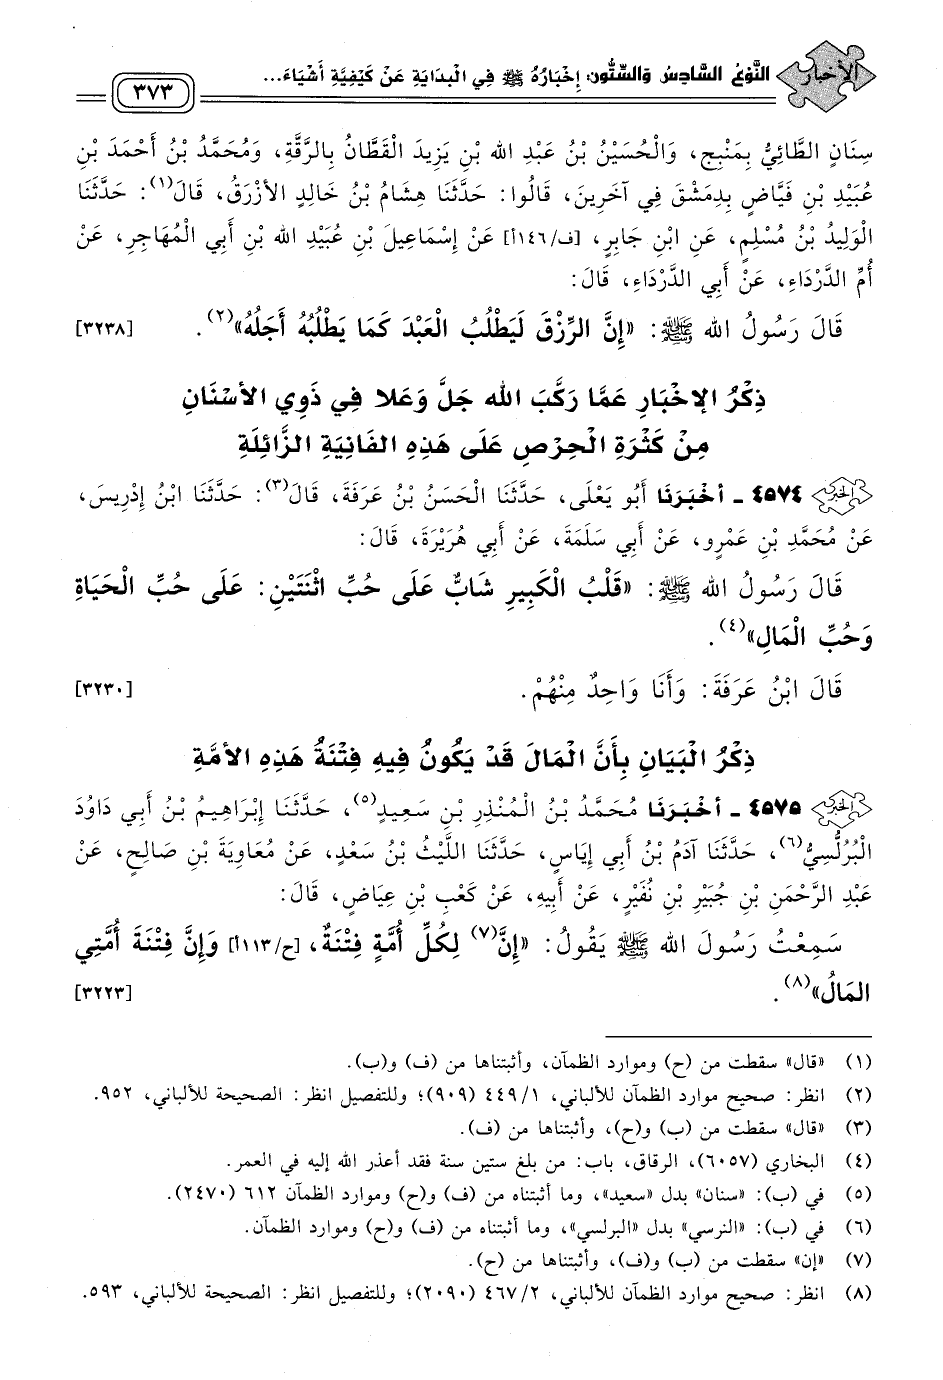 الأخبار
النَّوْعُ السَّادِسُ وَالسِّتُّونَ: إِخْبَارُهُ ﷺ فِي الْبَدَايَةِ عَنْ كَيْفِيَّةِ أَشْيَاءَ...
٣٧٣
سِنَانٍ الطَّائِيُّ بِمَنْبِجٍ، وَالْحُسَيْنُ بْنُ عَبْدِ اللهِ بْنِ يَزِيدَ الْقَطَّانُ بِالرَّقَّةِ، وَمُحَمَّدُ بْنُ أَحْمَدَ بْنِ
عُبَيْدِ بْنِ فَيَّاضٍ بِدِمَشْقَ فِي آخَرِينَ، قَالُوا: حَدَّثَنَا هِشَامُ بْنُ خَالِدٍ الأَزْرَقُ، قَالَ(١): حَدَّثَنَا
الْوَلِيدُ بْنُ مُسْلِمٍ، عَنِ ابْنِ جَابِرٍ، [ف/١٤٦أ] عَنْ إِسْمَاعِيلَ بْنِ عُبَيْدِ اللهِ بْنِ أَبِي الْمُهَاجِرِ، عَنْ
أُمِّ الدَّرْدَاءِ، عَنْ أَبِي الدَّرْدَاءِ، قَالَ:
قَالَ رَسُولُ اللهِ ﷺ: «إِنَّ الرِّزْقَ لَيَطْلُبُ الْعَبْدَ كَمَا يَطْلُبُهُ أَجَلُهُ»(٢). [٣٢٣٨]
ذِكْرُ الإِخْبَارِ عَمَّا رَكَّبَ اللهُ جَلَّ وَعَلا فِي ذَوِي الأَسْنَانِ
مِنْ كَثْرَةِ الْحِرْصِ عَلَى هَذِهِ الْفَانِيَةِ الزَّائِلَةِ
الخبر ٤٥٧٤ ـ أَخْبَرَنَا أَبُو يَعْلَى، حَدَّثَنَا الْحَسَنُ بْنُ عَرَفَةَ، قَالَ(٣): حَدَّثَنَا ابْنُ إِدْرِيسَ،
عَنْ مُحَمَّدِ بْنِ عَمْرٍو، عَنْ أَبِي سَلَمَةَ، عَنْ أَبِي هُرَيْرَةَ، قَالَ:
قَالَ رَسُولُ اللهِ ﷺ: «قَلْبُ الْكَبِيرِ شَابٌّ عَلَى حُبِّ اثْنَتَيْنِ: عَلَى حُبِّ الْحَيَاةِ
وَحُبِّ الْمَالِ»(٤).
قَالَ ابْنُ عَرَفَةَ: وَأَنَا وَاحِدٌ مِنْهُمْ. [٣٢٣٠]
ذِكْرُ الْبَيَانِ بِأَنَّ الْمَالَ قَدْ يَكُونُ فِيهِ فِتْنَةُ هَذِهِ الأُمَّةِ
الخبر ٤٥٧٥ ـ أَخْبَرَنَا مُحَمَّدُ بْنُ الْمُنْذِرِ بْنِ سَعِيدٍ(٥)، حَدَّثَنَا إِبْرَاهِيمُ بْنُ أَبِي دَاوُدَ
الْبُرُلُّسِيُّ(٦)، حَدَّثَنَا آدَمُ بْنُ أَبِي إِيَاسٍ، حَدَّثَنَا اللَّيْثُ بْنُ سَعْدٍ، عَنْ مُعَاوِيَةَ بْنِ صَالِحٍ، عَنْ
عَبْدِ الرَّحْمَنِ بْنِ جُبَيْرِ بْنِ نُفَيْرٍ، عَنْ أَبِيهِ، عَنْ كَعْبِ بْنِ عِيَاضٍ، قَالَ:
سَمِعْتُ رَسُولَ اللهِ ﷺ يَقُولُ: «إِنَّ(٧) لِكُلِّ أُمَّةٍ فِتْنَةٌ، [ح/١١٣أ] وَإِنَّ فِتْنَةَ أُمَّتِي
الْمَالُ»(٨). [٣٢٢٣]
(١) «قال» سقطت من (ح) وموارد الظمآن، وأثبتناها من (ف) و(ب).
(٢) انظر: صحيح موارد الظمآن للألباني، ٤٤٩/١ (٩٠٩)؛ وللتفصيل انظر: الصحيحة للألباني، ٩٥٢.
(٣) «قال» سقطت من (ب) و(ح)، وأثبتناها من (ف).
(٤) البخاري (٦٠٥٧)، الرقاق، باب: من بلغ ستين سنة فقد أعذر الله إليه في العمر.
(٥) في (ب): «سنان» بدل «سعيد»، وما أثبتناه من (ف) و(ح) وموارد الظمآن ٦١٢ (٢٤٧٠).
(٦) في (ب): «النرسي» بدل «البرلسي»، وما أثبتناه من (ف) و(ح) وموارد الظمآن.
(٧) «إن» سقطت من (ب) و(ف)، وأثبتناها من (ح).
(٨) انظر: صحيح موارد الظمآن للألباني، ٤٦٧/٢ (٢٠٩٠)؛ وللتفصيل انظر: الصحيحة للألباني، ٥٩٣.